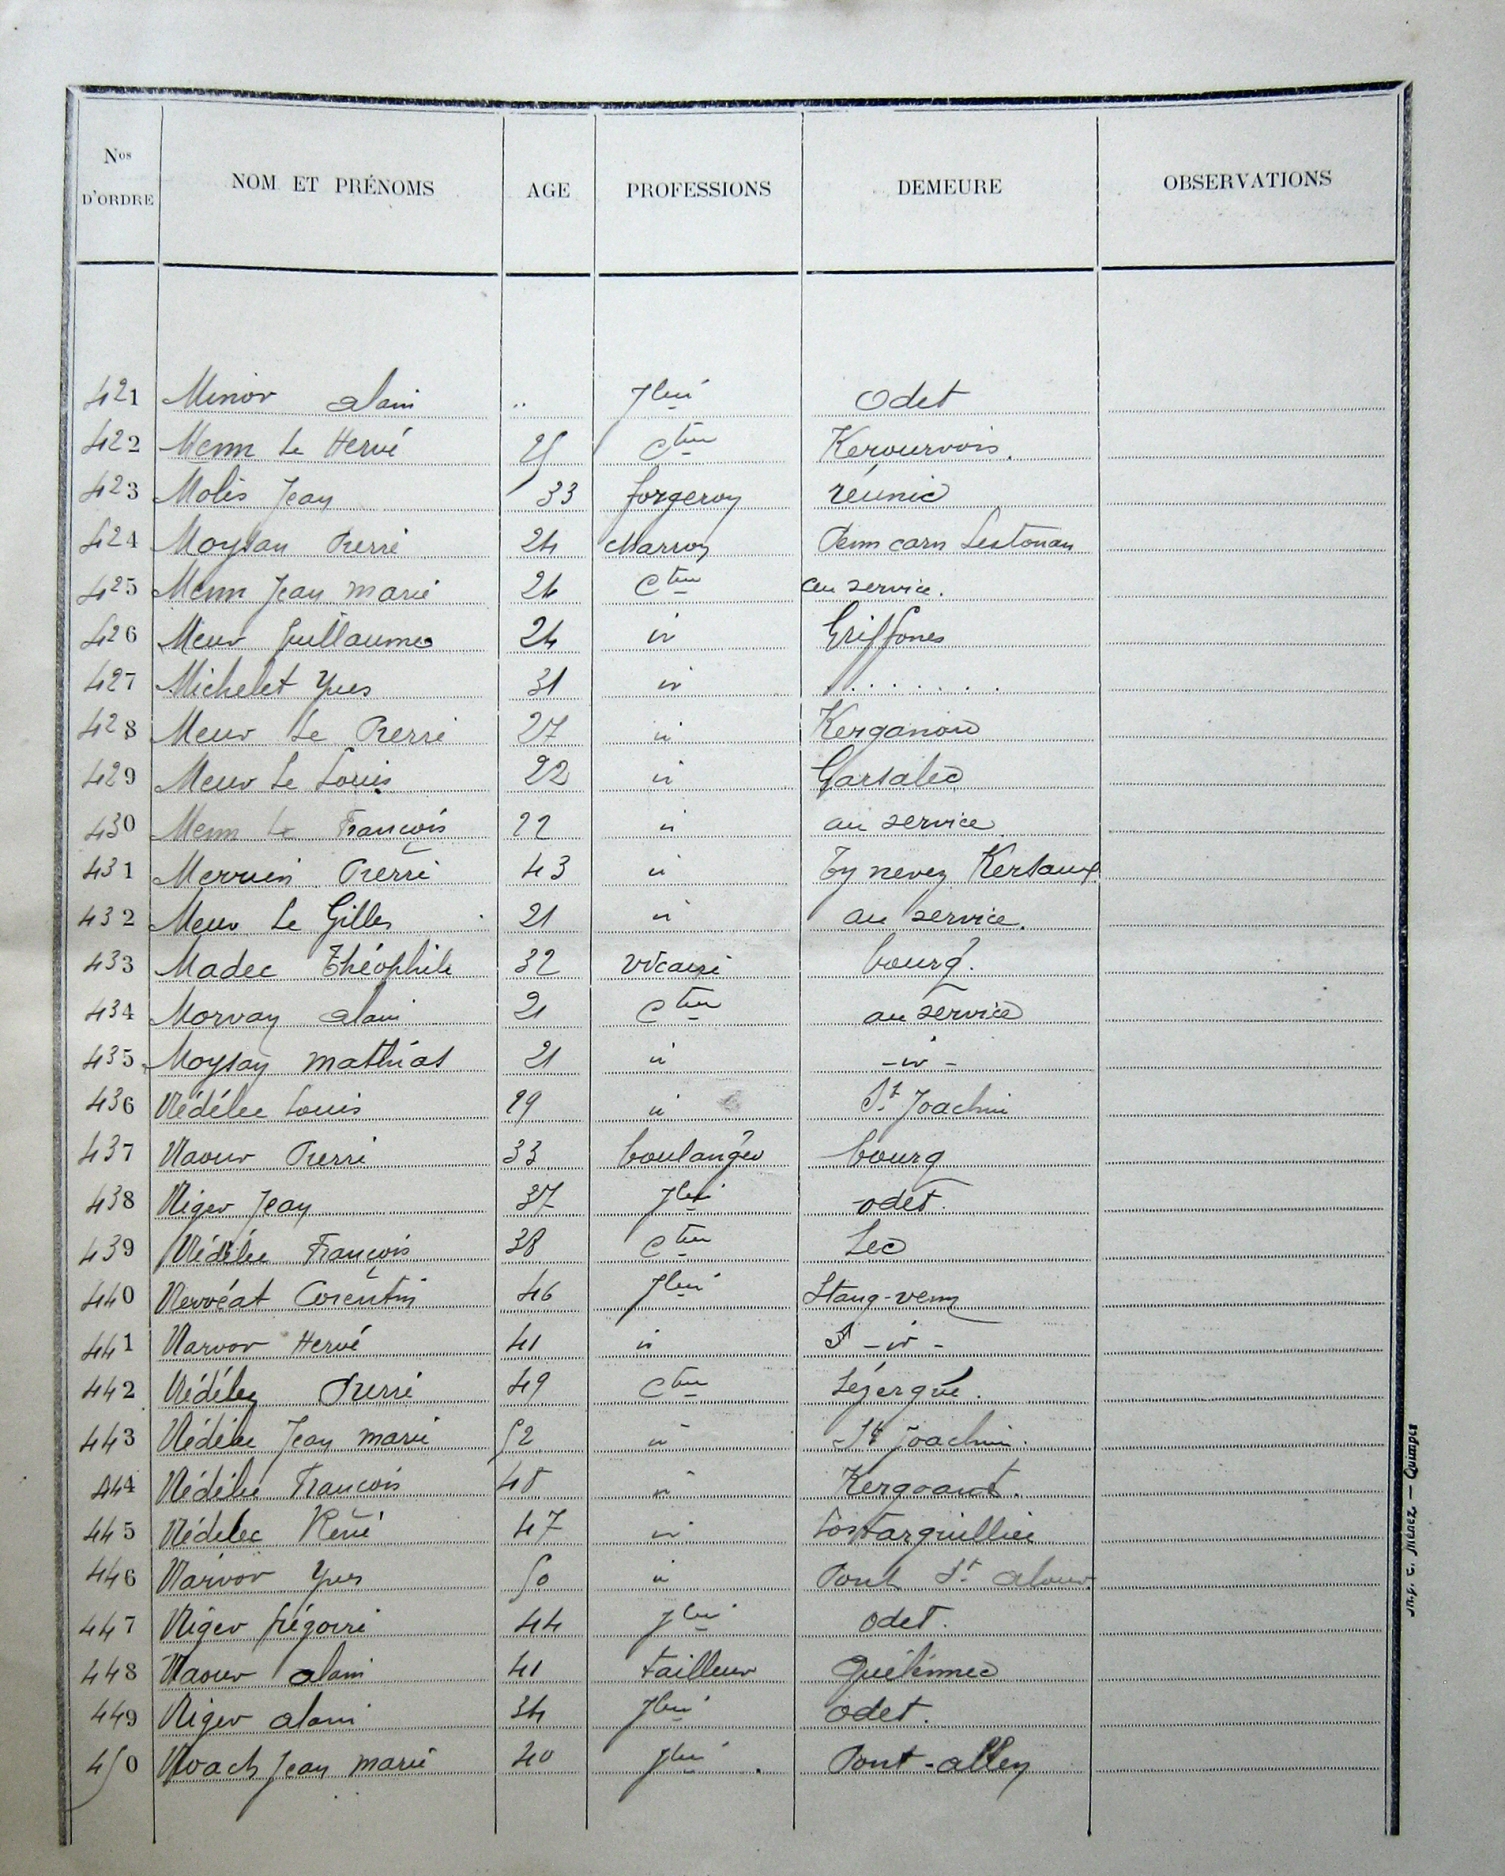 Nos D'ORDRE NOM ET PRÉNOMS AGE PROFESSIONS DEMEURE OBSERVATIONS
421 Minor alain .. Jlier Odet
422 Menn Le Hervé 25 Cteur Kerourvois.
423 Molis Jean 33 forgeron réunic
424 Moysan Pierre 24 charron Penn carn Lestonan
425 Menn Jean marie 24 Cteur au service.
426 Meur Guillaume 24 id Griffones
427 Michelet Yves 31 id . . . . . . .
428 Meur Le Pierre 27 id Kerganou
429 Meur Le Louis 22 id Garsalec
430 Menn Le François 22 id au service
431 Merrien Pierre 43 id Ty nevez Kersaux
432 Meur Le Gilles 21 id au service.
433 Madec Théophile 32 vicaire bourg.
434 Morvan alain 21 Cteur au service
435 Moysan mathias 21 id - id -
436 Nédélec Louis 29 id St Joachim
437 Naour Pierre 33 boulanger bourg
438 Niger Jean 37 Jlier odet.
439 Nédélec François 38 Cteur Lec
440 Nervéat Corentin 46 Jlier Stang-venn
441 Narvor Hervé 41 id - id -
442 Nédélec Pierre 49 Cteur Lézergué.
443 Nédélec Jean marie 52 id St Joachim.
444 Nédélec François 48 id Kergoant.
445 Nédélec René 47 id Lostarguillec
446 Narvor Yves 50 id Pont St alouv
447 Niger Grégoire 44 Jlier odet.
448 Naour alain 41 tailleur Quélennec
449 Niger alain 34 Jlier odet.
450 Noach Jean marie 40 Jlier. Pont-allen
Imp. C. Ménez. — Quimper